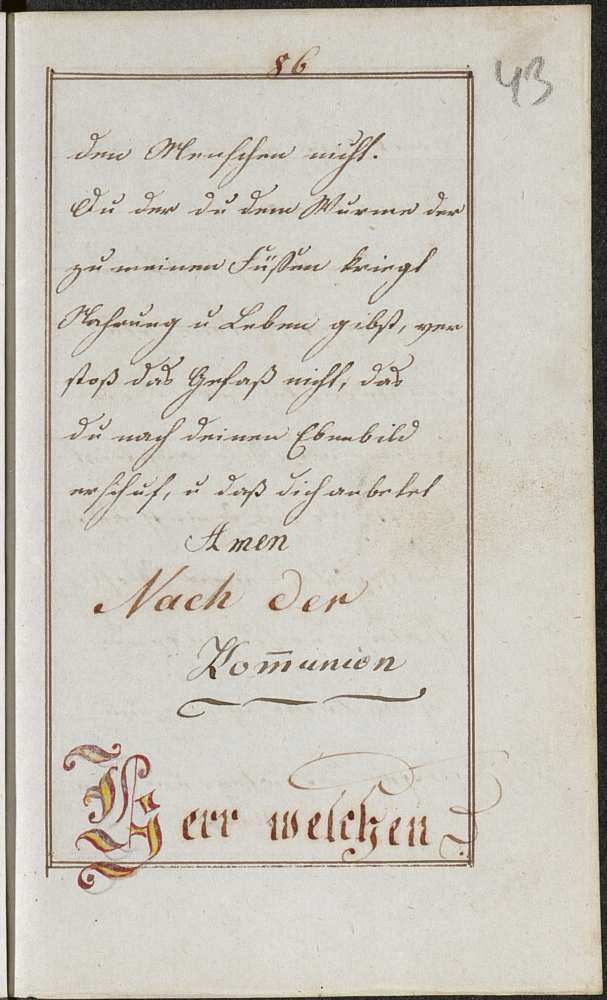 86
43
den Menschen nicht.
Du der du dem Wurme der
zu meinen Füssen kriegt
Nahrung u Leben gibst, ver
stoß das Gefäß nicht, das
du nach deinen Ebenbild
erschuf, u daß dich anbetet
Amen
Nach der
Kom̅union
Herr welchen